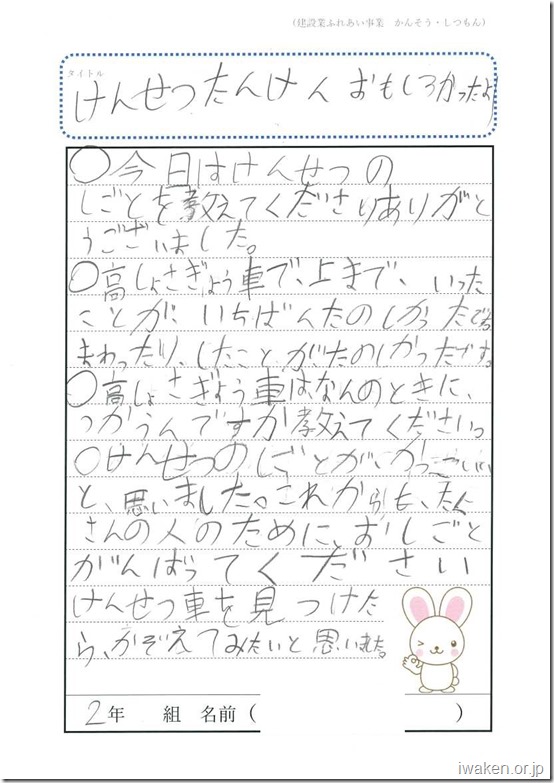 (建設業ふれあい事業 かんそう・しつもん)
タイトル
けんせつたんけん おもしろかったよ
○今日はけんせつの
しごとを教えてくださりありがと
うございました。
○高しょさぎょう車で、上まで、いった
ことが、いちばんたのしかったです。
まわったり、したことがたのしかったです。
○高しょさぎょう車はなんのときに、
つかうんですか教えてくださいっ
○けんせつのしごとが、かっこいい
と、思いました。これからも、たく
さんの人のために、おしごと
がんばってください
けんせつ車を見つけた
ら、かぞえてみたいと思いました。
2年 組 名前( )
iwaken.or.jp